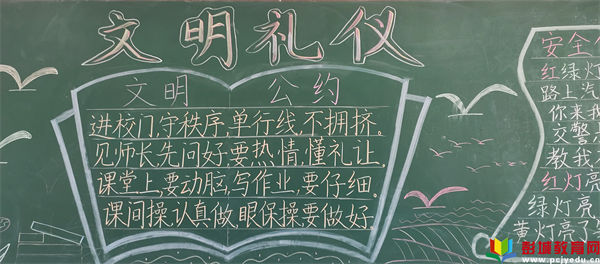 文明礼仪
文明公约
进校门,守秩序,单行线,不拥挤。
见师长,先问好,要热情,懂礼让。
课堂上,要动脑,写作业,要仔细。
课间操,认真做,眼保操,要做好。
安全
红绿灯
路上汽
你来我
交警
教我
红灯亮
绿灯亮
黄灯亮了
彭城教育网
www.pcjyedu.cn